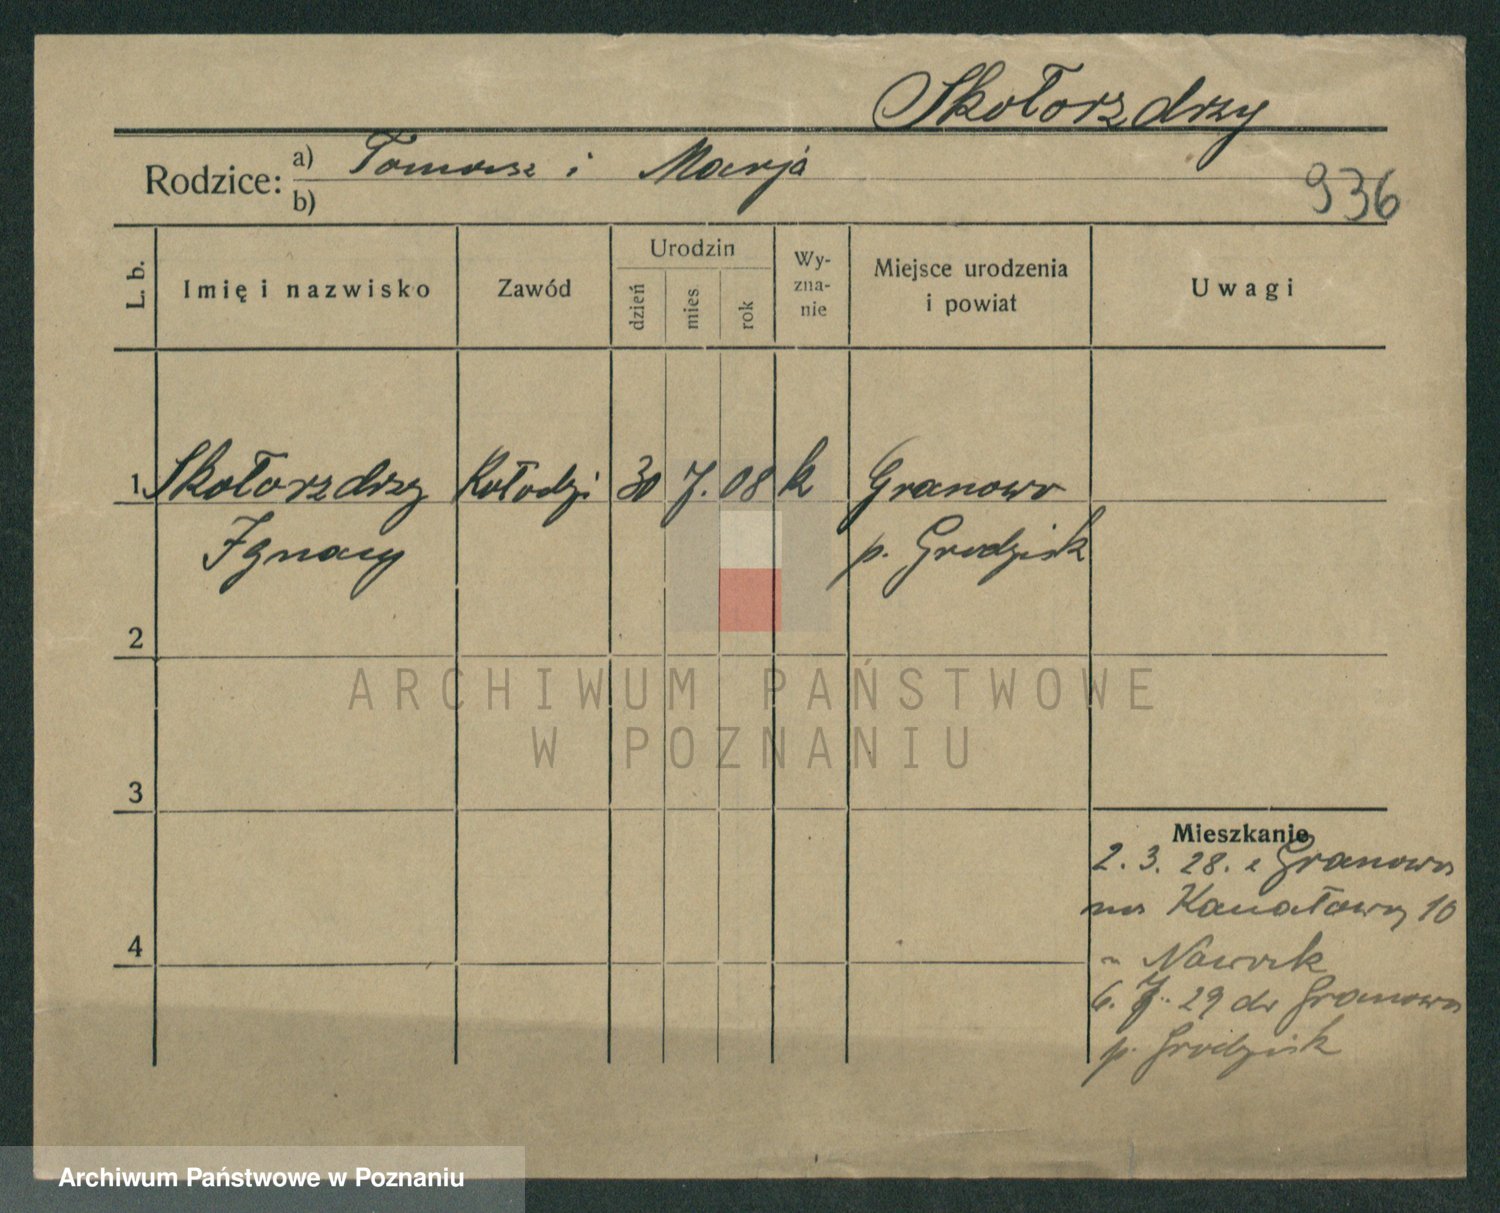 Skołorzdrzy
Rodzice: a) Tomasz i Marja
b)
936
L. b. Imię i nazwisko Zawód Urodzin dzień mies rok Wy-zna-nie Miejsce urodzenia i powiat Uwagi
1 Skołorzdrzy Kołodzi 30 7. 08 k Granowo
Ignacy p. Grodzisk
2
ARCHIWUM PAŃSTWOWE
W POZNANIU
3
Mieszkanie
2. 3. 28. z Granowa
na Kanałowy 10
Nawrok
4
6. 7. 29 do Granowa
p. Grodzisk
Archiwum Państwowe w Poznaniu